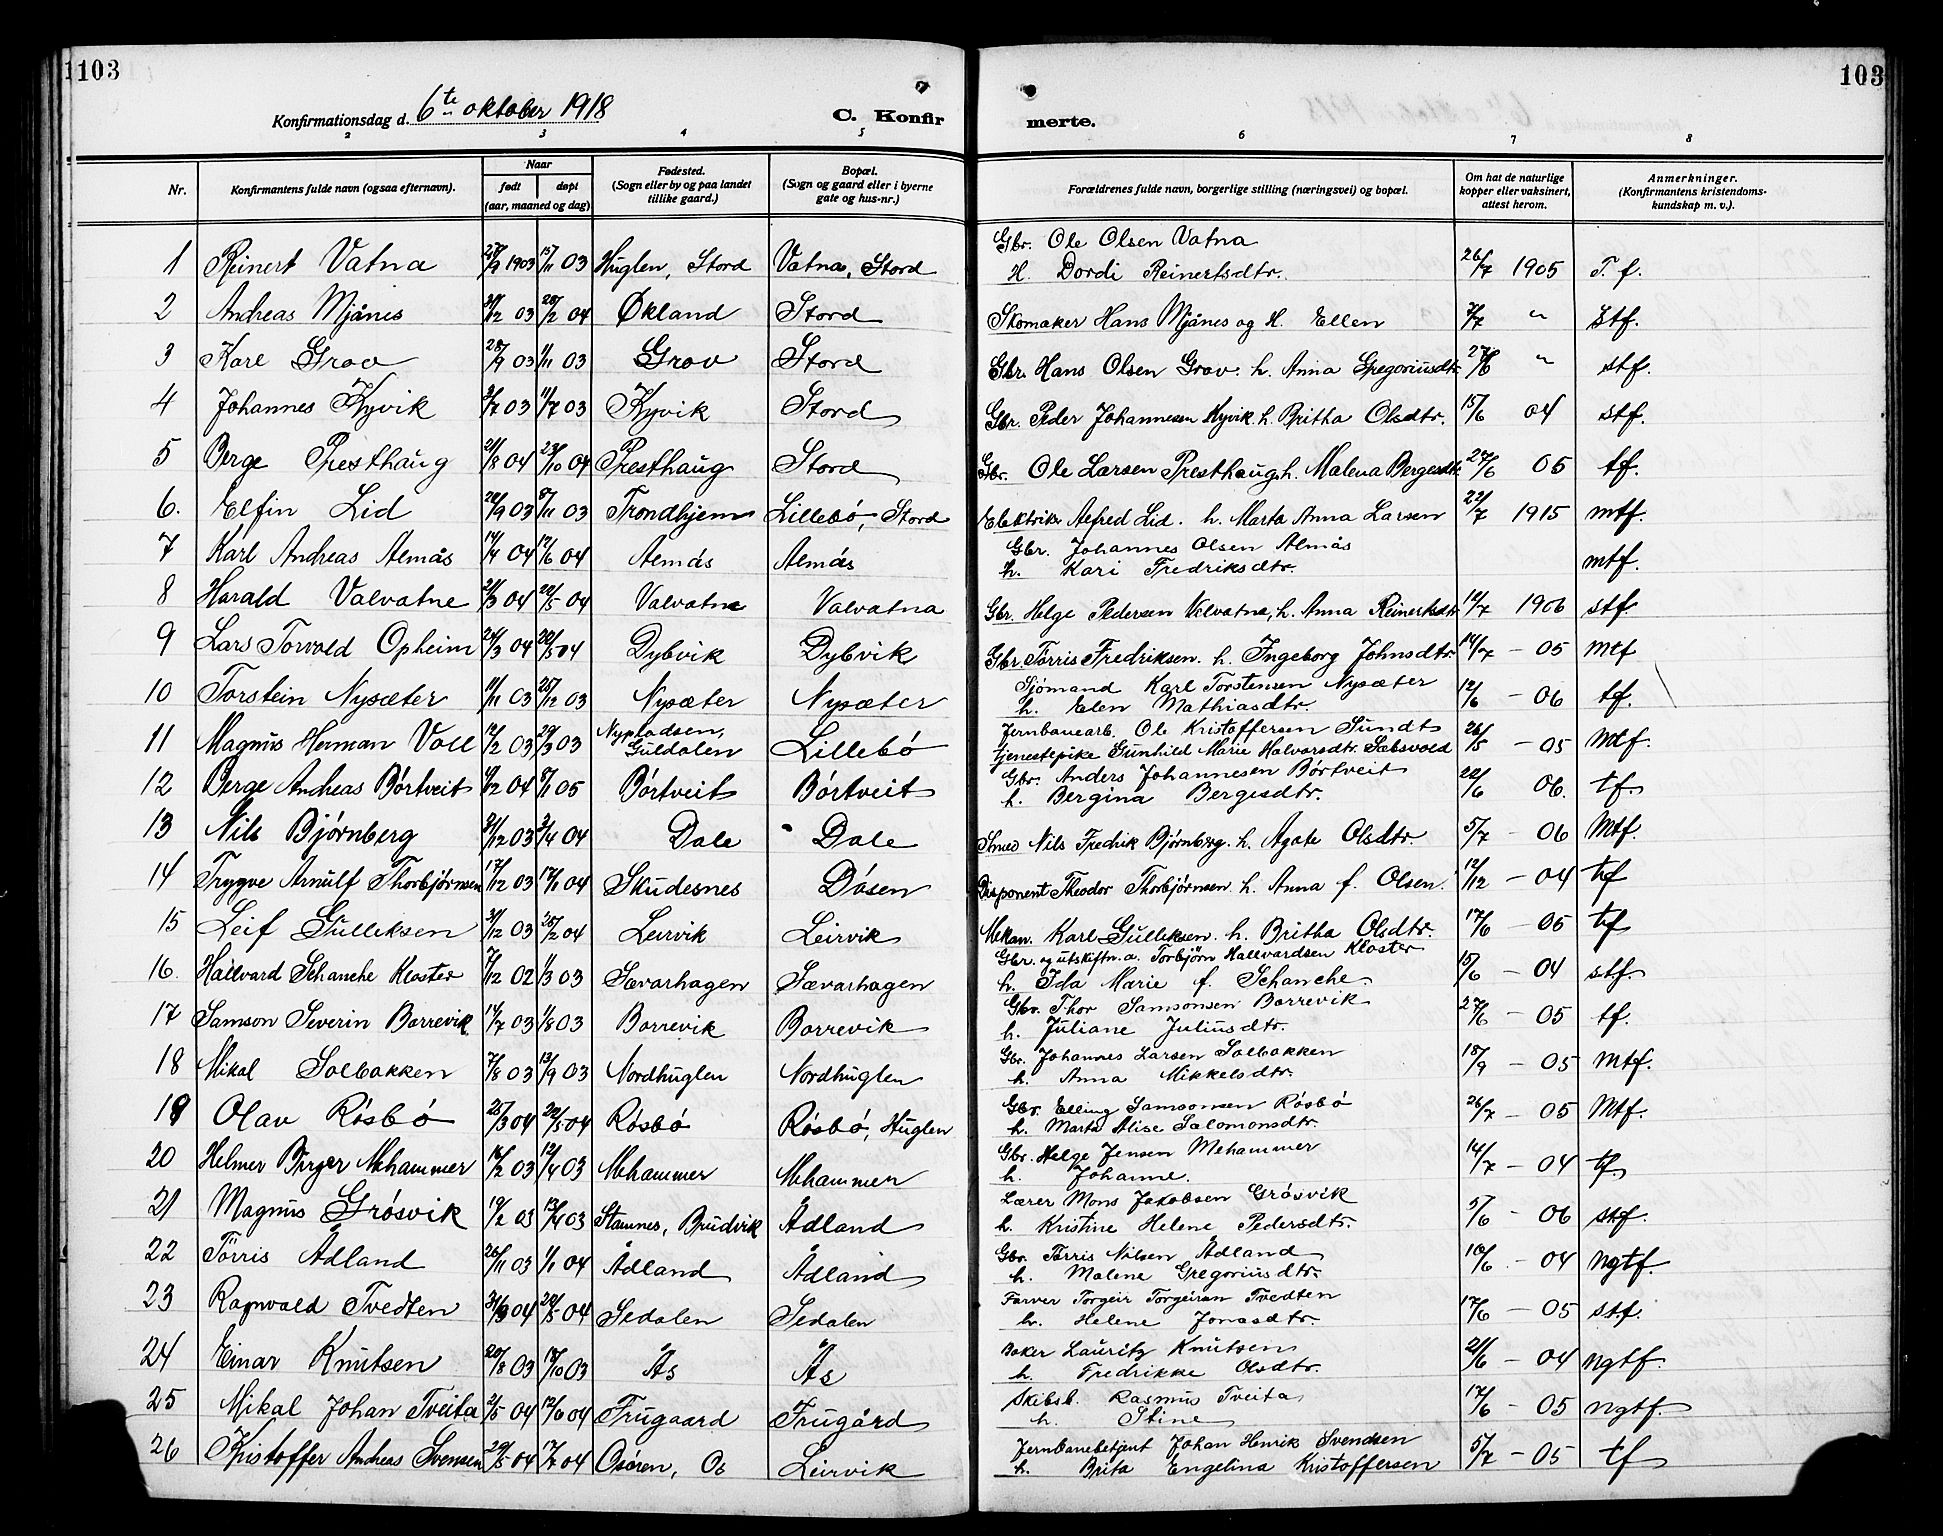 103
103
Konfirmationsdag d. 6te oktober 1918
C. Konfirmerte.
2 3 4 5 6 7 8
Nr.
Konfirmantens fulde navn (ogsaa efternavn).
Naar
født døpt
(aar, maaned og dag)
Fødested.
(Sogn eller by og paa landet
tillike gaard.)
Bopæl.
(Sogn og gaard eller i byerne
gate og hus-nr.)
Forældrenes fulde navn, borgerlige stilling (næringsvei) og bopæl.
Om hat de naturlige
kopper eller vaksinert,
attest herom.
Anmerkninger.
(Konfirmantens kristendoms-
kundskap m. v.).
1 Reinert Vatna 27/9 1903 15/11 03 Huglen, Stord Vatna, Stord Gbr. Ole Olsen Vatna
H. Dordi Reinertsdtr. 26/7 1905 T. f.
2 Andreas Mjånes 31/12 03 28/2 04 Økland Stord Skomaker Hans Mjånes og H. Ellen 3/7 " Stf.
3 Karl Grov 28/9 03 1/11 03 Grov Stord Gbr. Hans Olsen Grov. h. Anna Gregoriusdtr. 27/6 " stf.
4 Johannes Kyvik 3/7 03 11/7 03 Kyvik Stord Gbr. Peder Johannesen Kyvik. h. Britha Olsdtr. 15/6 04 stf.
5 Berge Presthaug 21/8 04 23/10 04 Presthaug Stord Gbr. Ole Larsen Presthaug h. Malena Bergesdtr. 27/6 05 tf.
6. Elfin Lid 24/9 03 8/11 03 Trondhjem Lillebö, Stord Elektrik. Alfred Lid. h. Marta Anna Larsen 22/7 1915 mtf.
7 Karl Andreas Almås 14/4 04 12/6 04 Almås Almås Gbr. Johannes Olsen Almås
h. Kari Fredriksdtr. mtf.
8 Harald Valvatne 21/3 04 24/5 04 Valvatne Valvatna Gbr. Helge Pedersen Valvatne, h. Anna Reinertsdtr 12/7 1906 stf.
9 Lars Torvald Opheim 24/3 04 22/5 04 Dybvik Dybvik Gbr. Törris Fredriksen. h. Ingeborg Johnsdtr. 14/7 — 05 Mtf
10 Torstein Nysæter 11/11 03 25/12 03 Nysæter Nysæter Sjömand Karl Torstensen Nysæter
h. Elen Mathiasdtr. 12/6 — 06 tf.
11 Magnus Herman Voll 14/2 03 29/3 03 Nypladsen,
Guldalen Lillebö Jernbanearb. Ole Kristoffersen Sundt
tjenestepike Gunhild Marie Halvarsdtr. 26/5 — 05 Mtf.
12 Berge Andreas Börtveit 9/12 04 8/1 05 Börtveit Börtveit Gbr. Anders Johannesen Börtveit
h. Bergina Bergesdtr. 22/6 06. tf.
13 Nils Bjørnberg 31/12 03 3/4 04 Dale Dale Smed Nils Fredrik Bjørnberg. h. Agate Olsdtr. 5/7 — 06 Mtf.
14 Trygve Arnulf Thorbjørnsen 17/12 03 17/1 04 Skudesnes Dösen Disponent Theodor Thorbjørnsen. h. Anna f. Olsen. 12/12 — 04 tf
15 Leif Gulleksen 31/12 03 28/2 04 Leirvik Leirvik Mekan. Karl Gulleksen. h. Britha Olsdtr. 17/6 — 05 tf
16. Hallvard Schanche Kloster 7/12 02 1/3 03 Sævarhagen Sævarhagen Gbr. og utskiftn. a. Torbjörn Hallvardsen Kloster
h. Ida Marie f. Schanche. 15/6 — 04 stf.
17 Samson Severin Borrevik 14/7 03 1/8 03 Borrevik Borrevik Gbr. Thor Samsonsen Borrevik
h. Juliane Juliusdtr. 27/6 — 05 tf.
18 Mikal Solbakken 7/8 03 13/9 03 Nordhuglen Nordhuglen Gbr. Johannes Larsen Solbakken
h. Anna Mikkelsdtr. 18/9 — 05 mtf.
19 Olav Rösbö 25/3 04 22/5 04 Rösbö Rösbö, Huglen Gbr. Elling Samsonsen Rösbö
h. Marta Alise Salomonsdtr. 26/7 — 05 Mtf.
20 Helmer Birger Mehammer 16/2 03 12/4 03 Mehammer Mehammer Gbr. Helge Jensen Mehammer
h. Johanne. 14/7 — 04 tf
21 Magnus Grösvik 19/2 03 13/4 03 Stamnes, Brudvik Ådland Lærer Mons Jakobsen Grösvik
h. Kristine Helene Pedersdtr. 5/6 — 06 stf.
22 Törris Ådland 26/11 03 1/1 04 Ådland Ådland Gbr. Törris Nilsen Ådland
h. Malene Gregoriusdtr. 10/6 — 04 ngtf.
23 Ragnvald Tvedten 31/3 04 22/5 04 Sedalen Sedalen Farver Torgeir Torgeirsen Tvedten
h. Helene Jonasdtr. 17/6 — 05 stf.
24 Einar Knutsen 20/8 03 18/10 03 Ås Ås Baker Lauritz Knutsen
h. Fredrikke Olsdtr. 21/6 — 04 ngtf.
25 Mikal Johan Tveita 2/5 04 12/6 04 Frugaard Frugård Skibsb. Rasmus Tveita
h. Stine 17/6 — 05 ngtf.
26 Kristoffer Andreas Svensen 29/5 04 17/7 04 Osören, Os Leirvik Jernbanebetjent Johan Henrik Svendsen
h. Brita Engelina Kristoffersen 5/7 — 05 tf